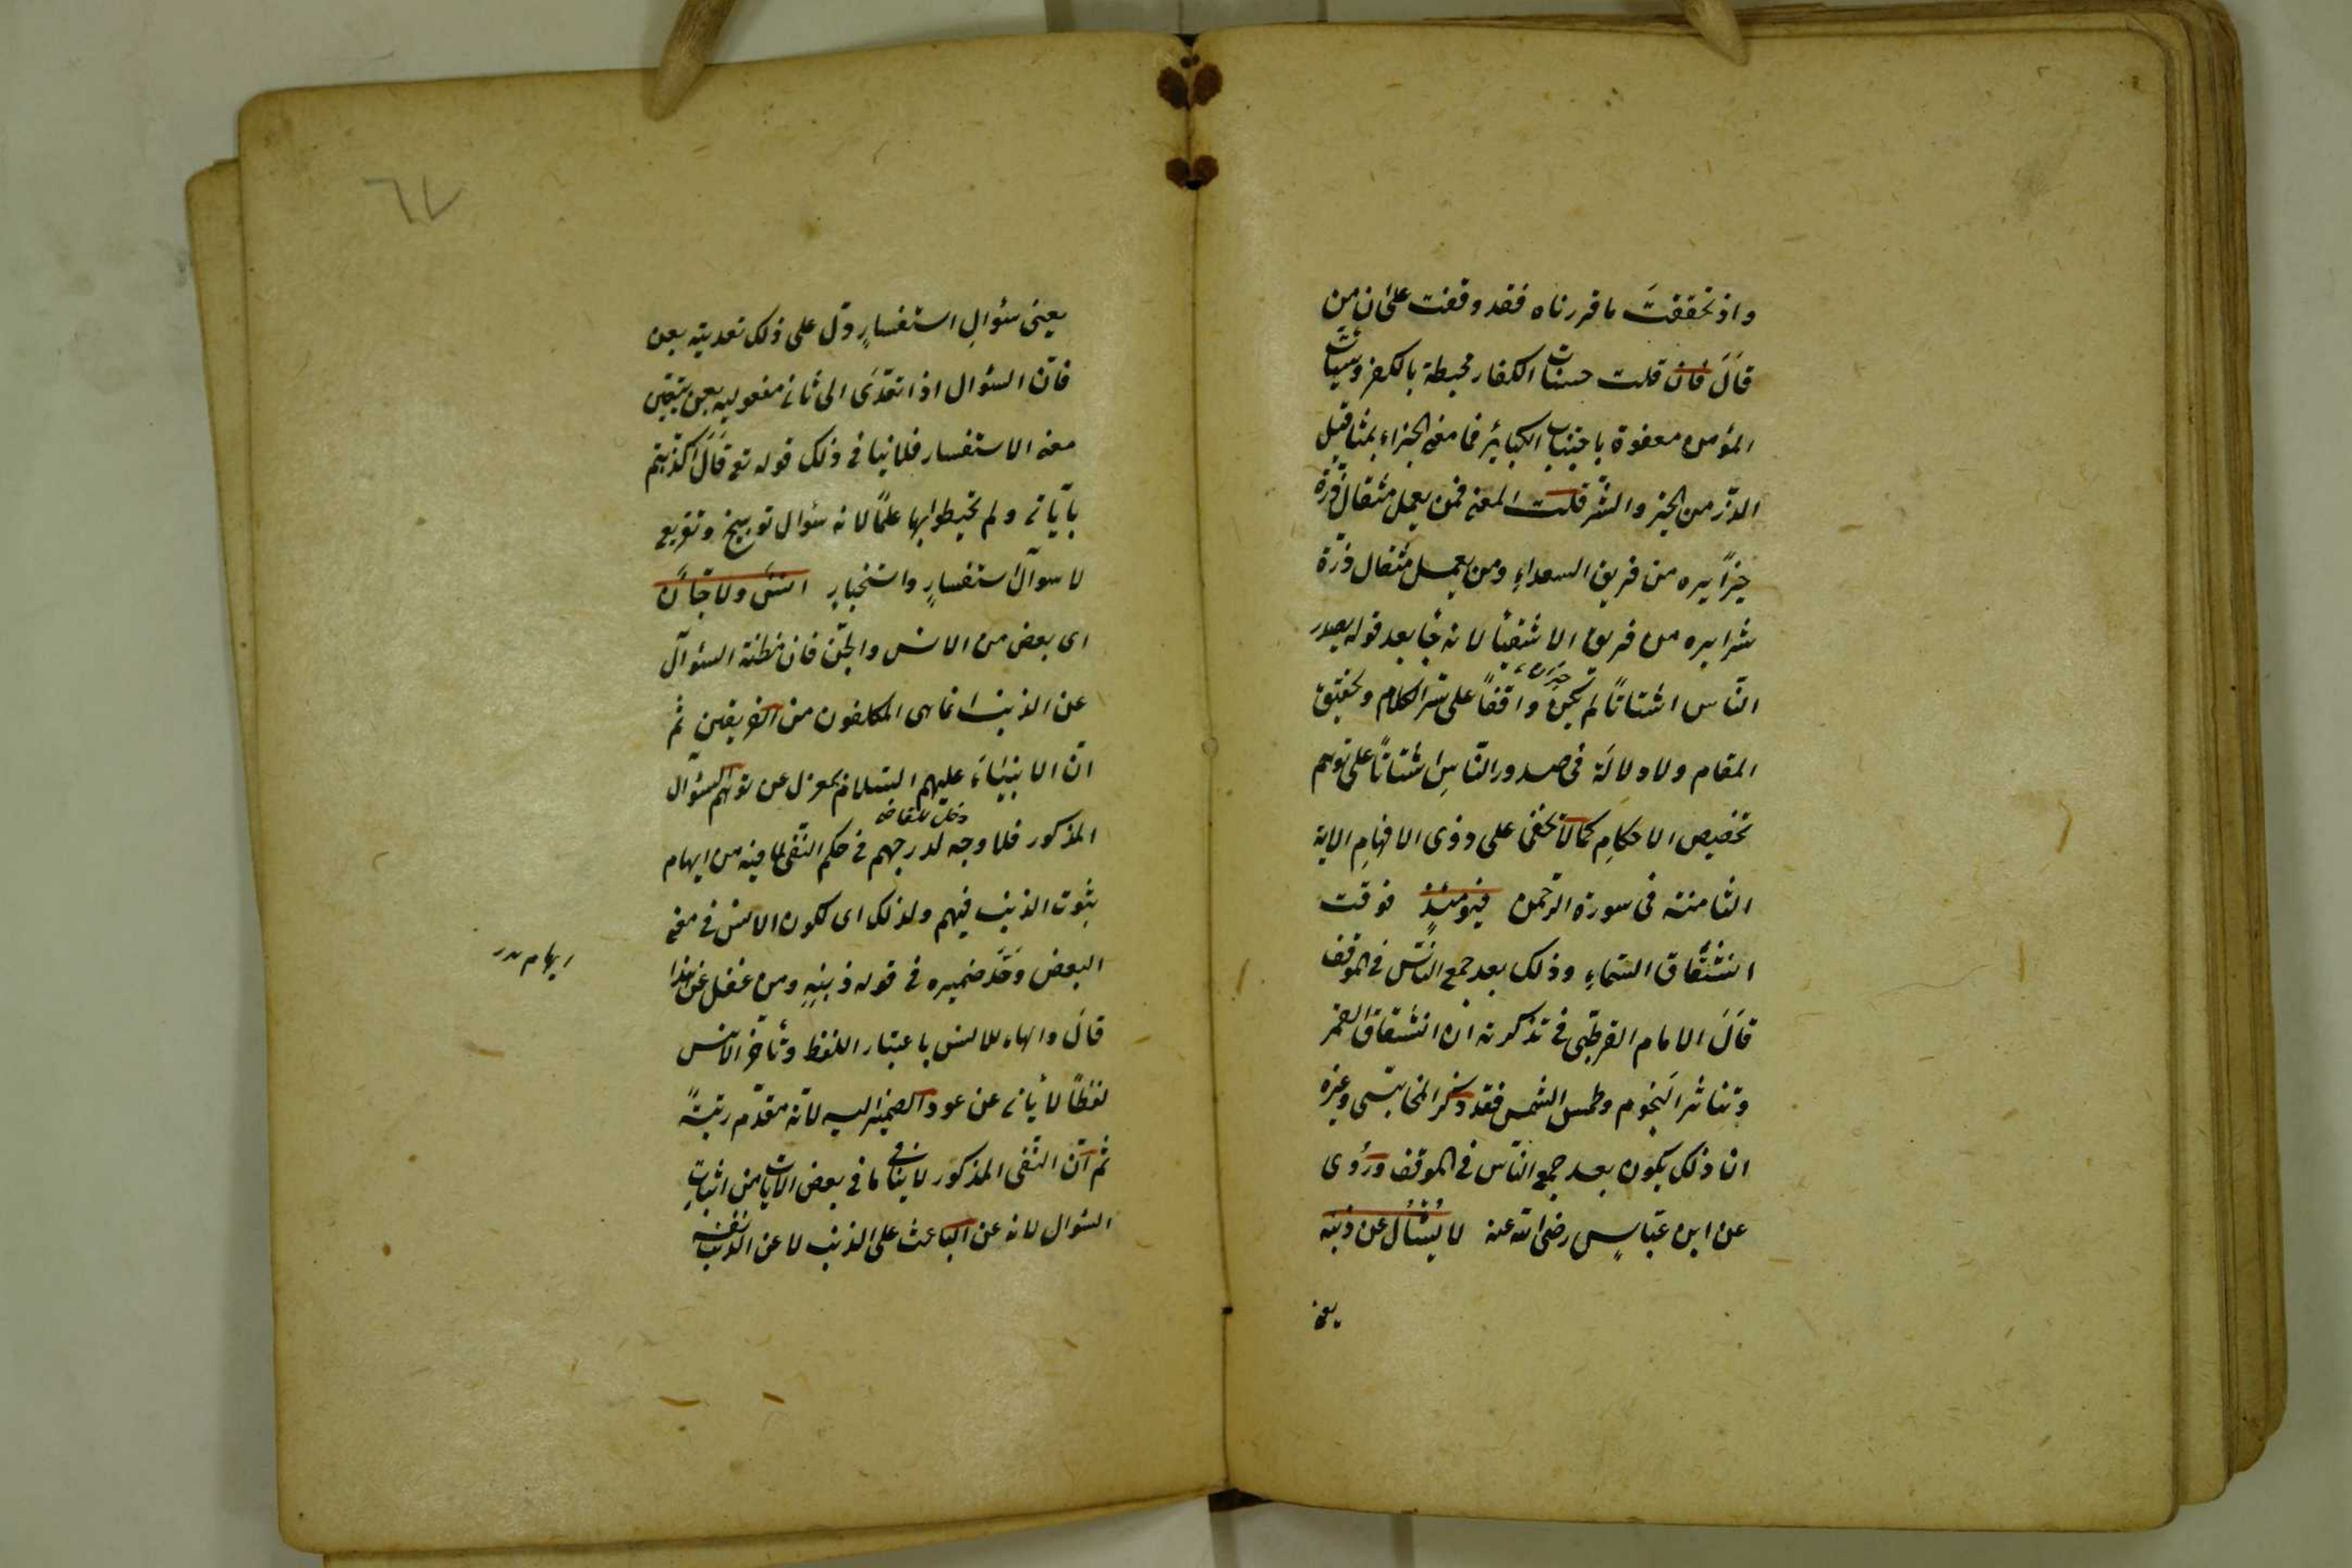 واذ تحققتَ ما قررناه فقد وقفت على ان من
قال فان قلت حسنات الكفار محبطة بالكفر وسيئات
المؤمن معفوة باجتناب الكبائر فما معنى الجزاء بمثاقيل
الذرّ من الخير والشرّ قلت المعنى فمن يعمل مثقال ذرة
خيرًا يره من فريق السعداءِ ومن يعمل مثقال ذرّة
شرا يره من فريق الاشقياء لانه جاء بعد قوله يصدر
النّاس اشتاتًا لم يكن واقفاً على سّر الكلام وتحقيق
المقام ولا دلالَة فى صدور النّاسِ اشتاتاً على توهم
تخصيص الاحكامِ كما لا يخفى على ذوى الافهامِ الاية
الثامنة فى سورة الرّحمن فيومئذٍ فوقت
انشقاق السّماءِ وذلك بعد جمع النّاس فى الموقف
قال الامام القرطبّى فى تذكرته ان انشقاق القمر
وتناثر النجوم وطمس الشمس فقد ذكر المحاسبى وغيره
ان ذلك يكون بعد جمع النّاس فى الموقف ورُوى
عن ابن عبّاسٍ رضى الله عنه لا يُسْئَل عن ذنبه
يعنى
٦٧
يعنى سُؤالِ استفسارٍ دلّ على ذلك تعديته بعن
فانّ السئوال اذا تعدّى الى ثانى مفعوليه بعن يتعيّن
معنى الاستفسار فلا ينافى ذلك قوله تع قَالَ اكذبتم
بآياتى ولم تحيطوا بها علمًا لانه سئوال توبيخ وتقريع
لا سوال استفسارٍ واستخبارٍ انسٌ ولا جَانّ
اى بعض من الانس والجنّ فان مظنة السئوال
عن الذنب انما هى المكلفون من الفريقين ثم
انّ الانبياءَ عليهم السّلام بمعزل عن توهّم السئوال
المذكور فلا وجه لدرجهم فى حكم النّفى لما فيه من ايهام
ثبوت الذنب فيهم ولذلك اى لكون الانس فى معنى
البعض وَحَّد ضميره فى قوله ذنبِهِ ومن غفل عن هذا
ايهام
قال والهاء للانس باعتبار اللفظ وتأخر الانس
لفظًا لا يأبى عن عود الضمير اليه لانّه مقدّم رتبةً
ثم انّ النّفى المذكور لا ينافى ما فى بعض الآيات من اثباتِ
السّوال لانه عن الباعث على الذنب لا عن الذنب نفسه